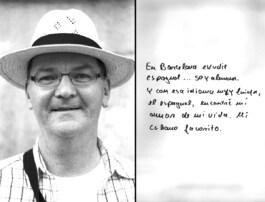 En Barcelona estudié
español... soy alemana.
Y con ese idioma muy lindo,
el español, encontré mi
amor de mi vida. Mi
cubano favorito.